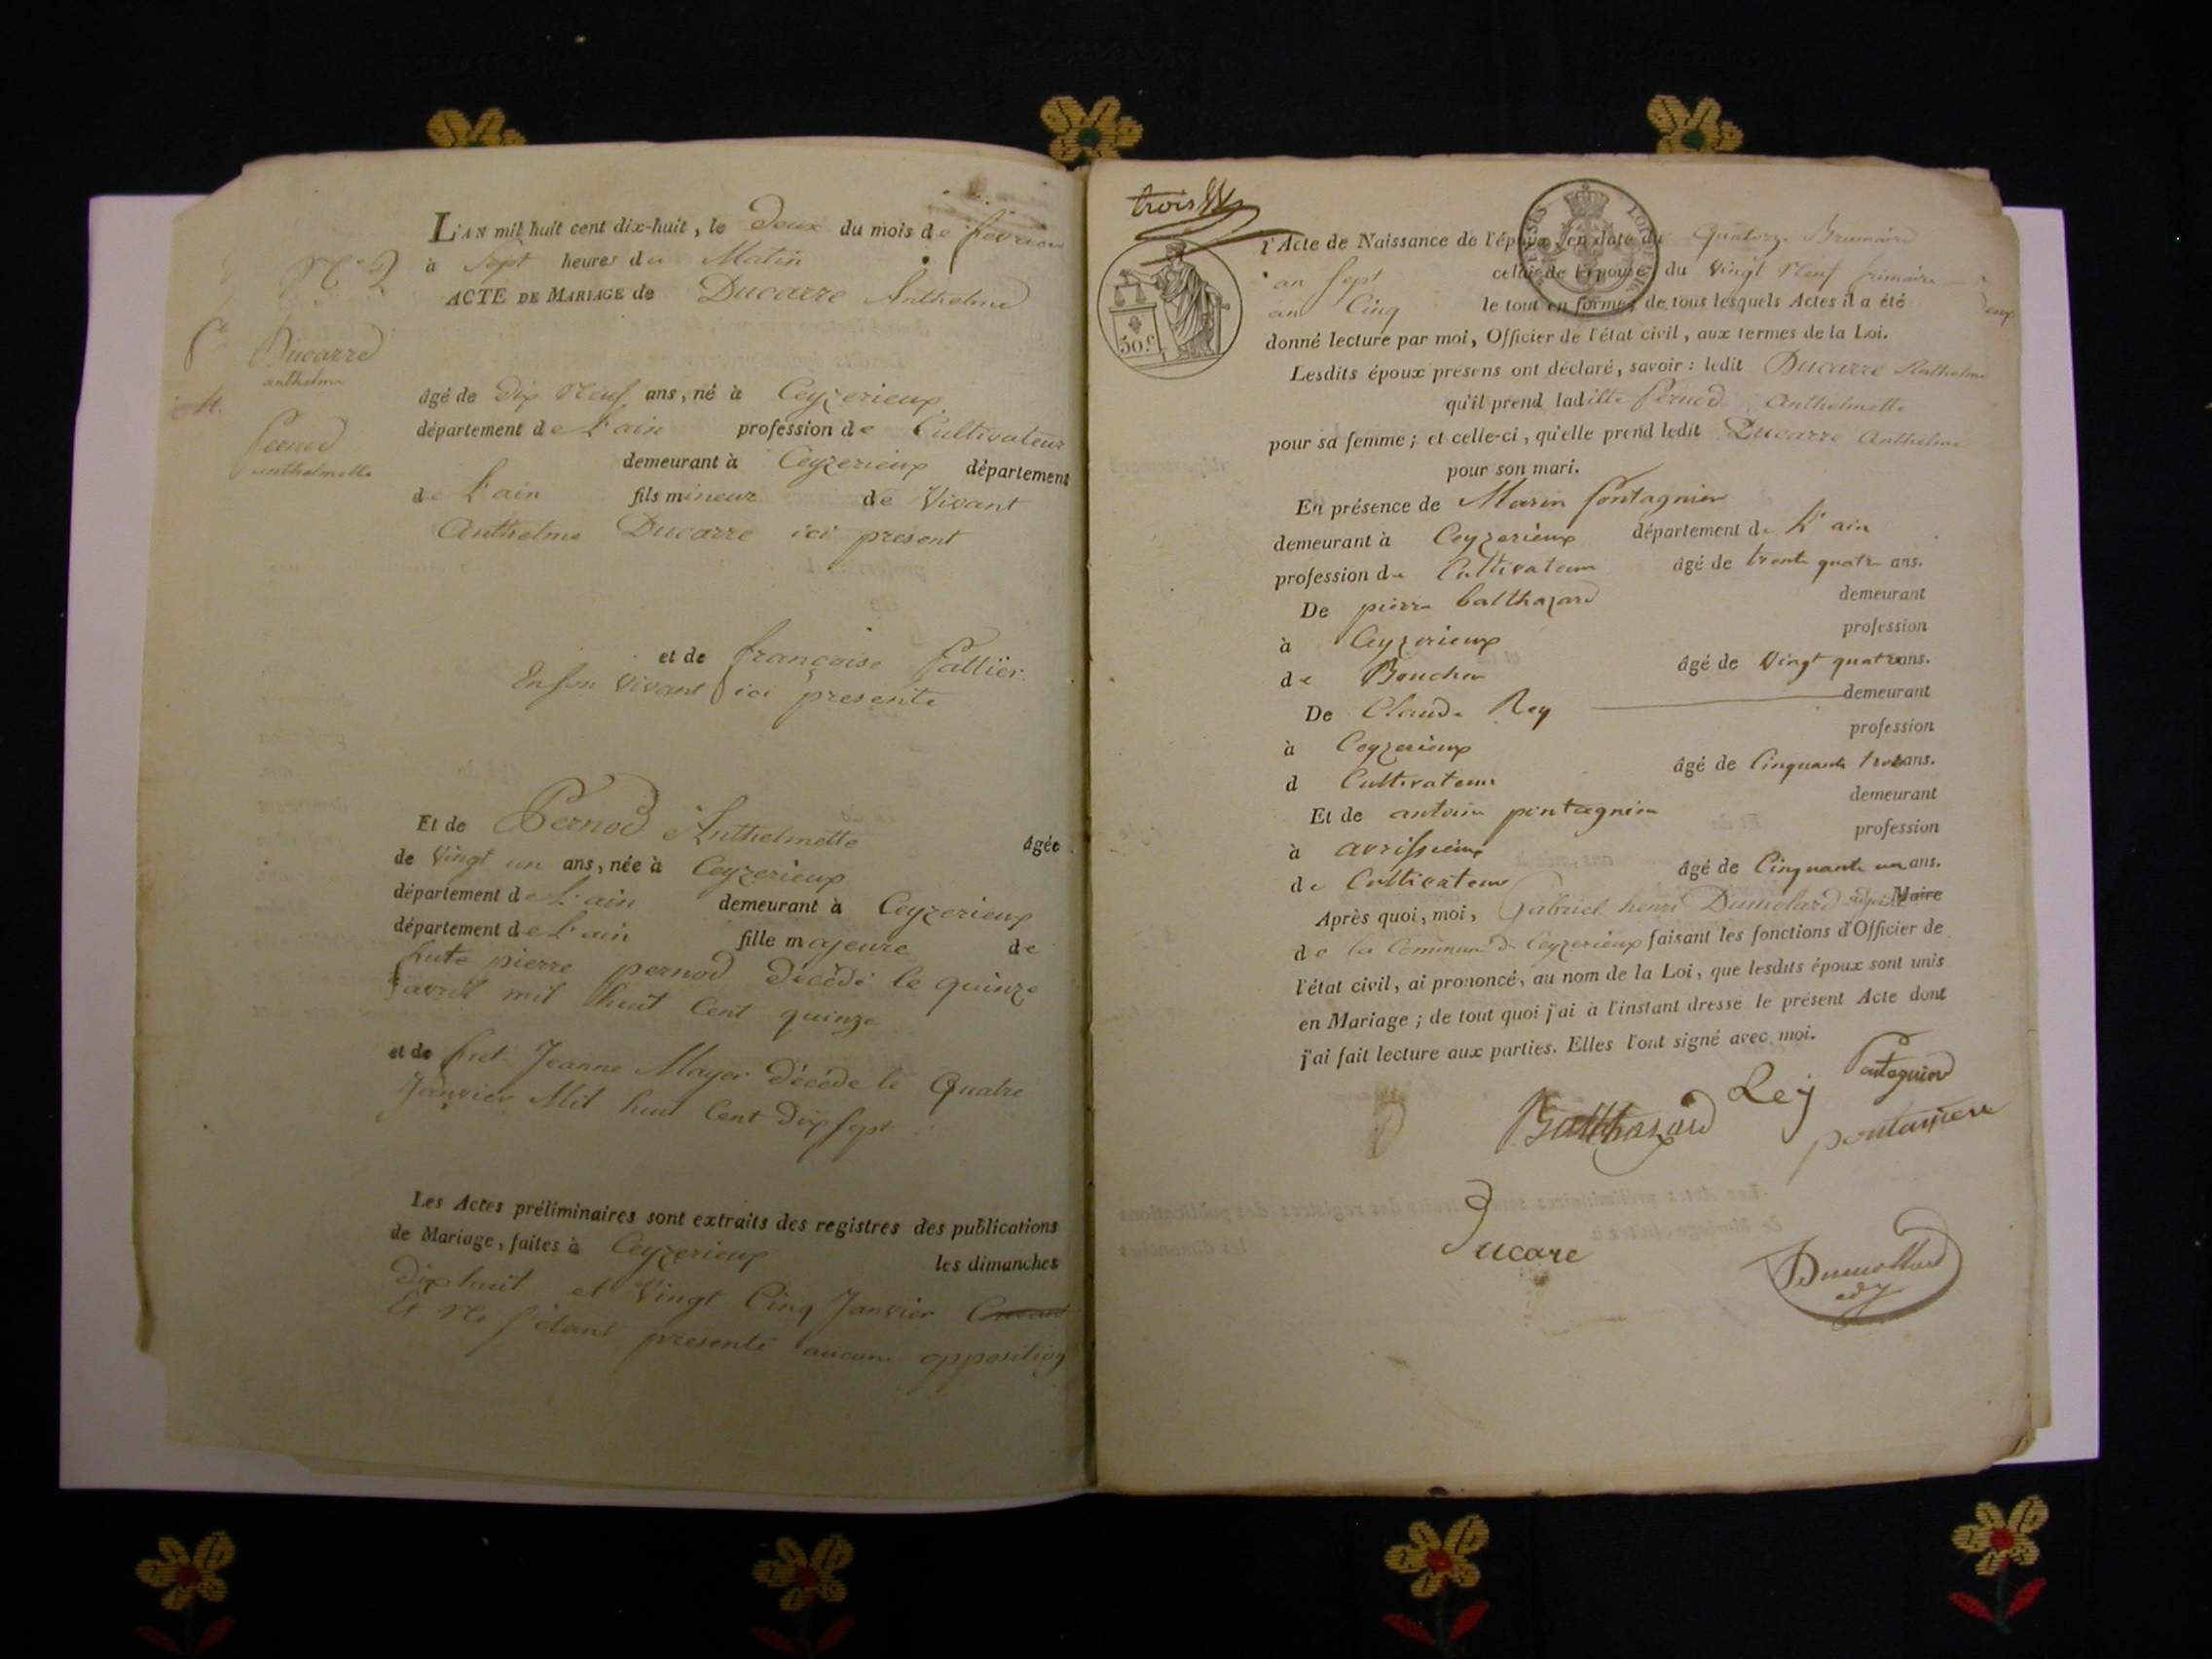 N° 2
Ducarre
anthelme
et
Pernod
anthelmette
L'AN mil huit cent dix-huit, le Deux du mois de fevrier
à sept heures du Matin
ACTE DE MARIAGE de Ducarre Anthelme
âgé de Dix Neuf ans, né à Ceyzerieux
département de L'ain profession de Cultivateur
demeurant à Ceyzerieux département
de L'ain fils mineur de Vivant
Anthelme Ducarre ici présent
et de françoise
En son vivant ici presente
Et de Pernod Anthelmette âgée
de Vingt un ans, née à Ceyzerieux
département de L'ain demeurant à Ceyzerieux
département de L'ain fille majeure de
fut pierre pernod Décédé le quinze
avril mil huit Cent quinze
et de fut Jeanne Mayer Décédé le Quatre
Janvier Mil huit Cent Dix sept
Les Actes préliminaires sont extraits des registres des publications
de Mariage, faites à Ceyzerieux les dimanches
Dix huit et Vingt Cinq Janvier Courant
Et Ne s'étant presenté aucune opposition
trois
50 c.
l'Acte de Naissance de l'époux, en date du Quatorze Brumaire
an sept celui de l'épouse, du Vingt Neuf frimaire
an Cinq le tout en forme; de tous lesquels Actes il a été
donné lecture par moi, Officier de l'état civil, aux termes de la Loi.
Lesdits époux présens ont déclaré, savoir : ledit Ducarre Anthelme
qu'il prend ladille Pernod Anthelmette
pour sa femme ; et celle-ci, qu'elle prend ledit Ducarre Anthelme
pour son mari.
En présence de Marin pontagnier
demeurant à Ceyzerieux département de L'ain
profession de Cultivateur âgé de trente quatre ans.
De pierre balthazard demeurant
à Ceyzerieux profession
de Boucher âgé de Vingt quatre ans.
De Claude Rey demeurant
à Ceyzerieux profession
d Cultivateur âgé de Cinquante trois ans.
Et de antoine pontagnier demeurant
à avrissieux profession
de Cultivateur âgé de Cinquante un ans.
Après quoi, moi, Gabriel henri Dumolard adjoint Maire
de la Commune de Ceyzerieux faisant les fonctions d'Officier de
l'état civil, ai prononcé, au nom de la Loi, que lesdits époux sont unis
en Mariage ; de tout quoi j'ai à l'instant dressé le présent Acte dont
j'ai fait lecture aux parties. Elles l'ont signé avec moi.
Balthazard Rey
Ducare
Dumollard
adj